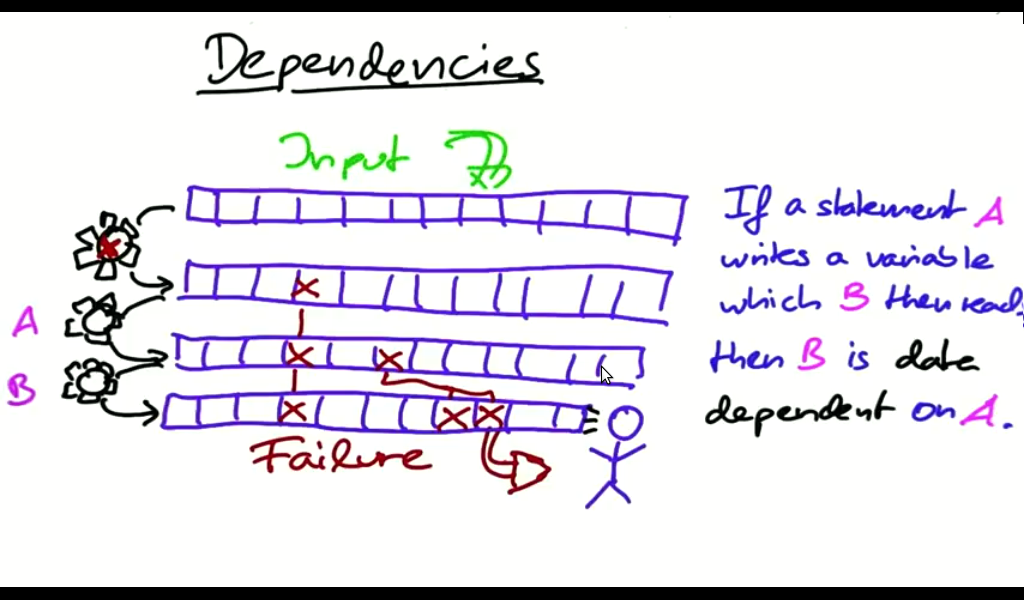 Dependencies
Input
If a statement A
writes a variable
which B then reads
then B is data
dependent on A.
A
B
Failure